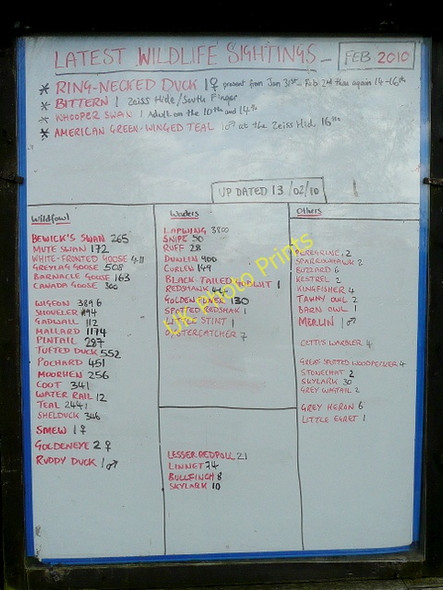 LATEST WILDLIFE SIGHTINGS - FEB 2010
* RING-NECKED DUCK 1♀ present from Jan 31st - Feb 2nd then again 14-16th
* BITTERN 1 Zeiss Hide/South Finger
* WHOOPER SWAN 1 Adult on the 10th and 14th
* AMERICAN GREEN-WINGED TEAL 1♂ at the Zeiss Hid 16th
UPDATED 13/02/10
Wildfowl
BEWICK'S SWAN 265
MUTE SWAN 172
WHITE-FRONTED GOOSE 411
GREYLAG GOOSE 508
BARNACLE GOOSE 163
CANADA GOOSE 300
WIGEON 3896
SHOVELER 494
GADWALL 112
MALLARD 1174
PINTAIL 287
TUFTED DUCK 552
POCHARD 451
MOORHEN 256
COOT 341
WATER RAIL 12
TEAL 2441
SHELDUCK 346
SMEW 1♀
GOLDENEYE 2♀
RUDDY DUCK 1♂
Waders
LAPWING 3800
SNIPE 50
RUFF 28
DUNLIN 400
CURLEW 149
BLACK-TAILED GODWIT 1
REDSHANK
GOLDEN PLOVER 130
SPOTTED REDSHANK 1
LITTLE STINT 1
OYSTERCATCHER 7
LESSER REDPOLL 21
LINNET 74
BULLFINCH 8
SKYLARK 10
Others
PEREGRINE 2
SPARROWHAWK 2
BUZZARD 6
KESTREL 2
KINGFISHER 4
TAWNY OWL 2
BARN OWL 1
MERLIN 1♂
CETTIS WARBLER 4
GREAT SPOTTED WOODPECKER 4
STONECHAT 2
SKYLARK 30
GREY WAGTAIL 2
GREY HERON 6
LITTLE EGRET 1
UK Photo Prints